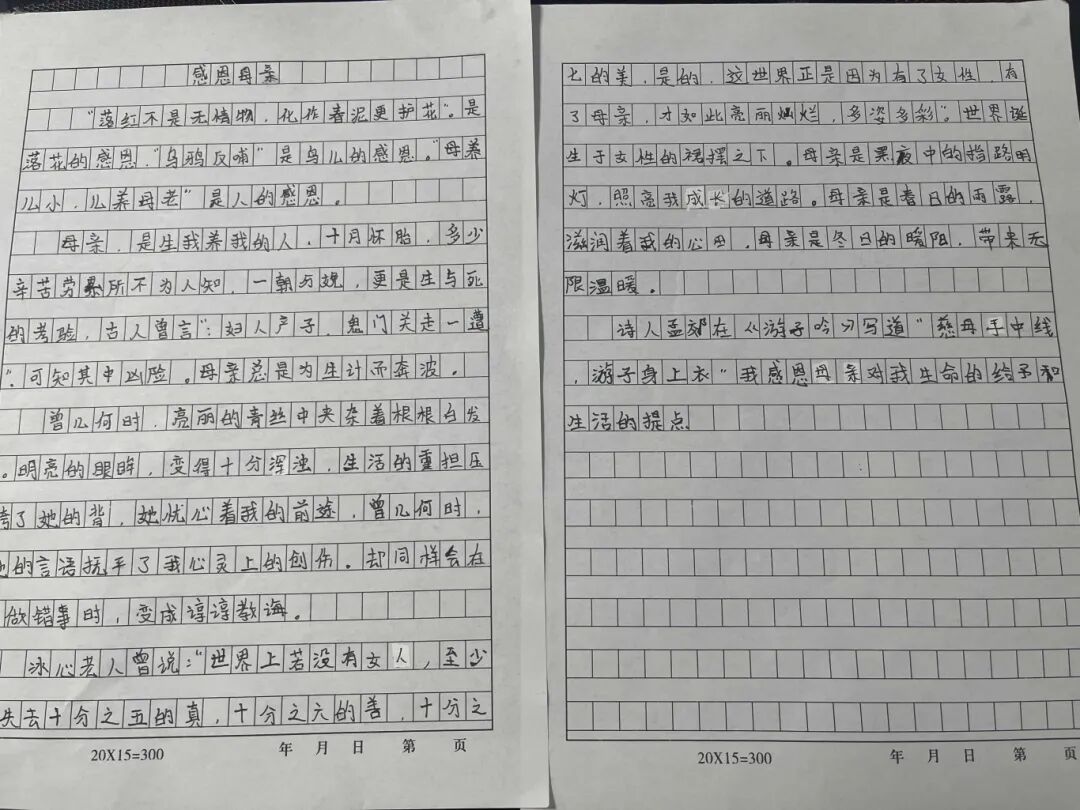 感恩母亲
“落红不是无情物，化作春泥更护花”。是
落花的感恩，“乌鸦反哺”是鸟儿的感恩。“母养
儿小，儿养母老”是人的感恩。
母亲，是生我养我的人，十月怀胎，多少
辛苦劳累所不为人知，一朝分娩，更是生与死
的考验，古人曾言“：妇人产子，鬼门关走一遭
”，可知其中凶险。母亲总是为生计而奔波。
曾几何时，亮丽的青丝中夹杂着根根白发
。明亮的眼眸，变得十分浑浊，生活的重担压
垮了她的背，她忧心着我的前途，曾几何时，
她的言语抚平了我心灵上的创伤。却同样会在
做错事时，变成谆谆教诲。
冰心老人曾说：“世界上若没有女人，至少
失去十分之五的真，十分之六的善，十分之
20X15=300
年 月 日 第 页
七的美，是的，这世界正是因为有了女性，有
了母亲，才如此亮丽灿烂，多姿多彩”。世界诞
生于女性的裙摆之下。母亲是黑夜中的指路明
灯，照亮我成长的道路。母亲是春日的雨露，
滋润着我的心田，母亲是冬日的暖阳，带来无
限温暖。
诗人孟郊在《游子吟》写道“慈母手中线
，游子身上衣”我感恩母亲对我生命的给予和
生活的提点
20X15=300
年 月 日 第 页